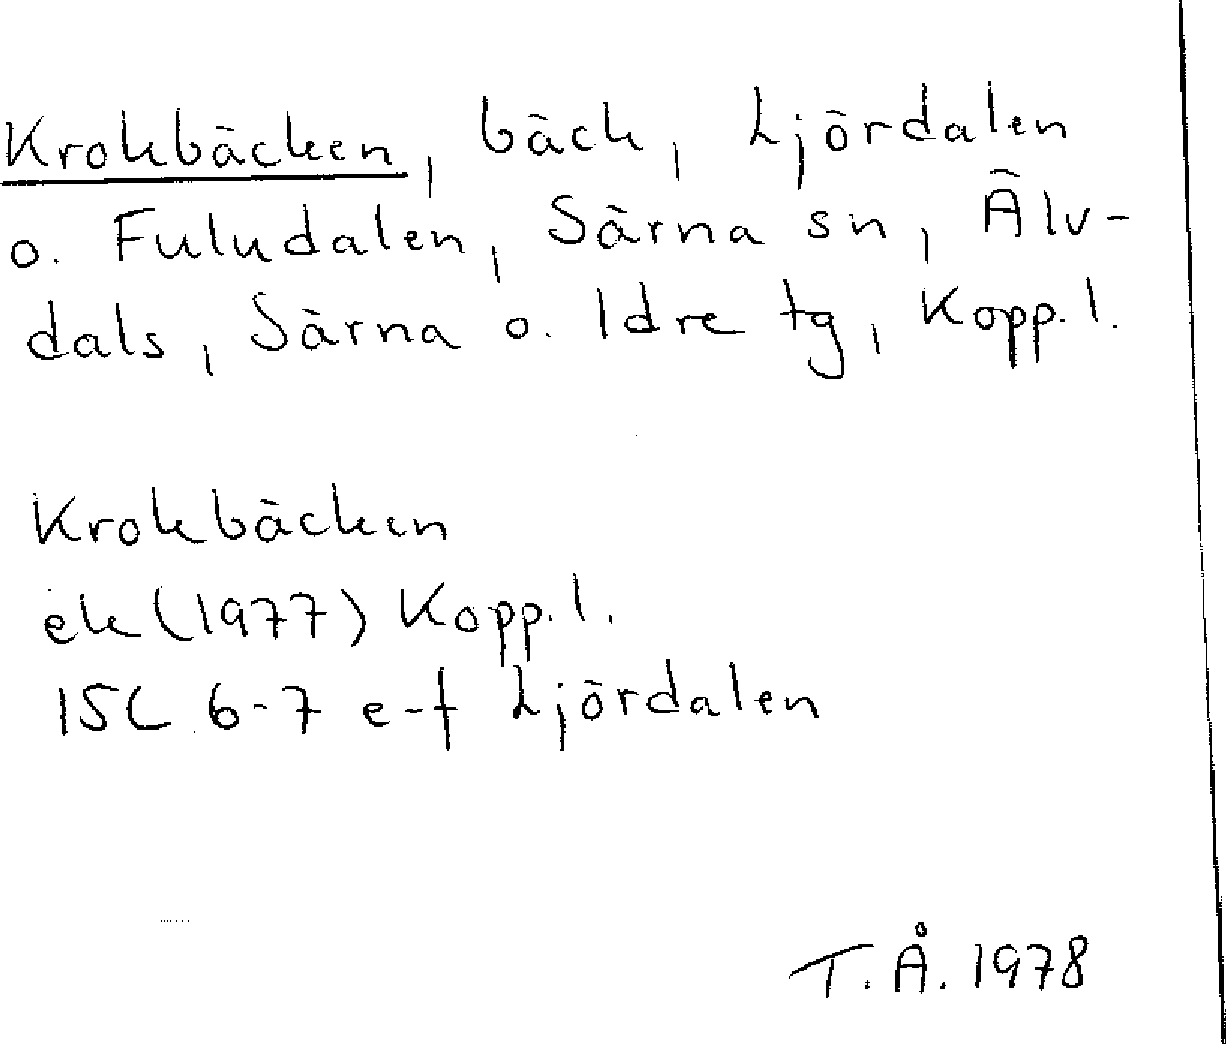 Krokbäcken, bäck, Ljördalen
o. Fuludalen, Särna sn, Älv-
dals, Särna o. Idre tg, Kopp. l.
Krokbäcken
ek (1977) Kopp. l.
15C 6-7 e-f Ljördalen
T.Å. 1978